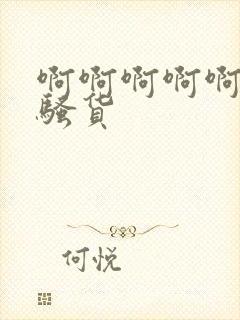 啊啊啊啊啊
骚货
何悦